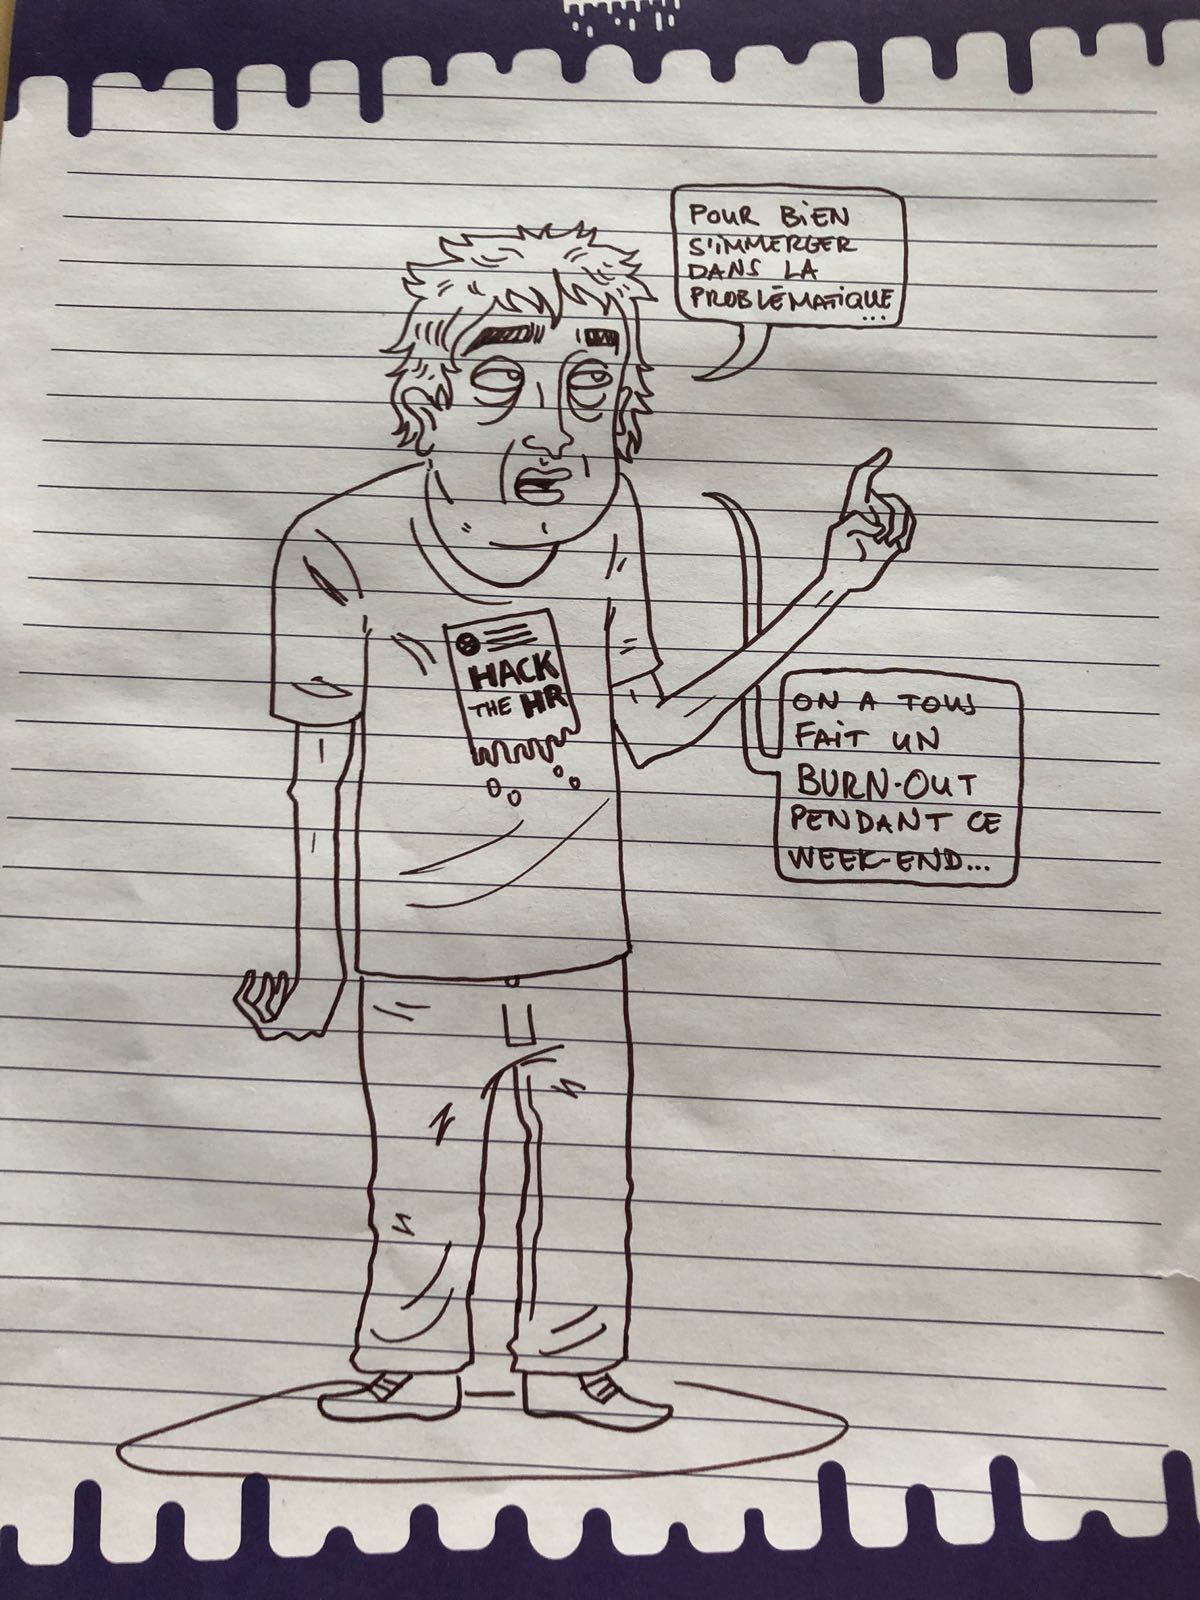 POUR BIEN
S'IMMERGER
DANS LA
PROBLÉMATIQUE
...
HACK
THE HR
ON A TOUS
FAIT UN
BURN-OUT
PENDANT CE
WEEK-END...